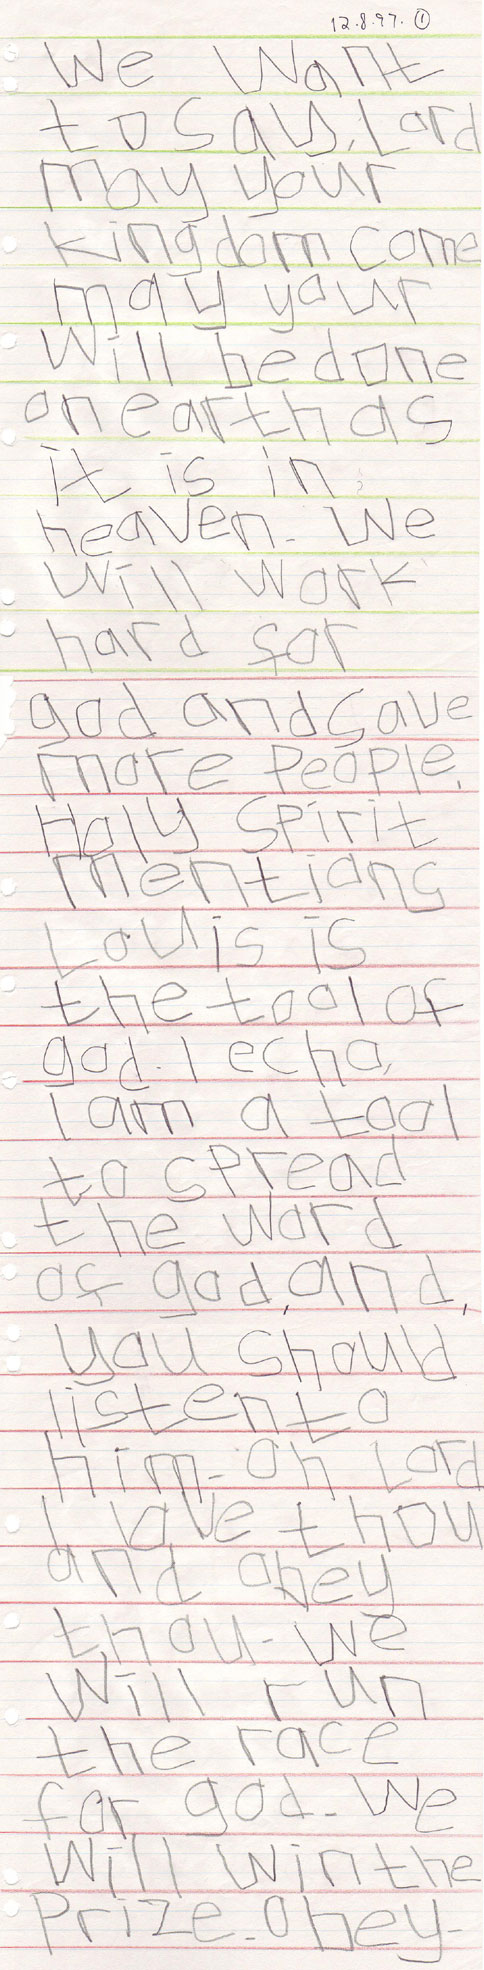 12.8.97. ①
We Want
to say, Lord
may your
kingdom come
may your
Will be done
on earth as
it is in
heaven. We
Will work
hard for
god and save
more People.
Holy Spirit
mentions
Louis is
the tool of
god. I echo,
I am a tool
to spread
the word
of god, and,
you should
listen to
him. Oh Lord
I love thou
and obey
thou. We
Will run
the race
for god. We
Will win the
Prize. Obey.